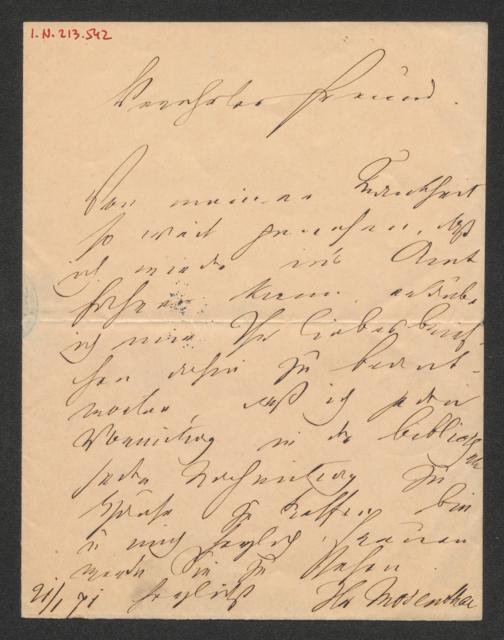 I.N. 213.542
Verehrter Freund.
Von meiner Krankheit
so weit genesen, daß
ich wieder ins Amt
kann, erlaube
ich mir Ihr liebes Brief-
chen dahin zu beant-
worten, daß ich jeden
Vormittag in der Bibliothek
jeden Nachmittag zu
Hause zu treffen bin
u mich herzlich freuen
werde Sie zu sehen.
21/1 71 herzlichst Ihr Mosenthal